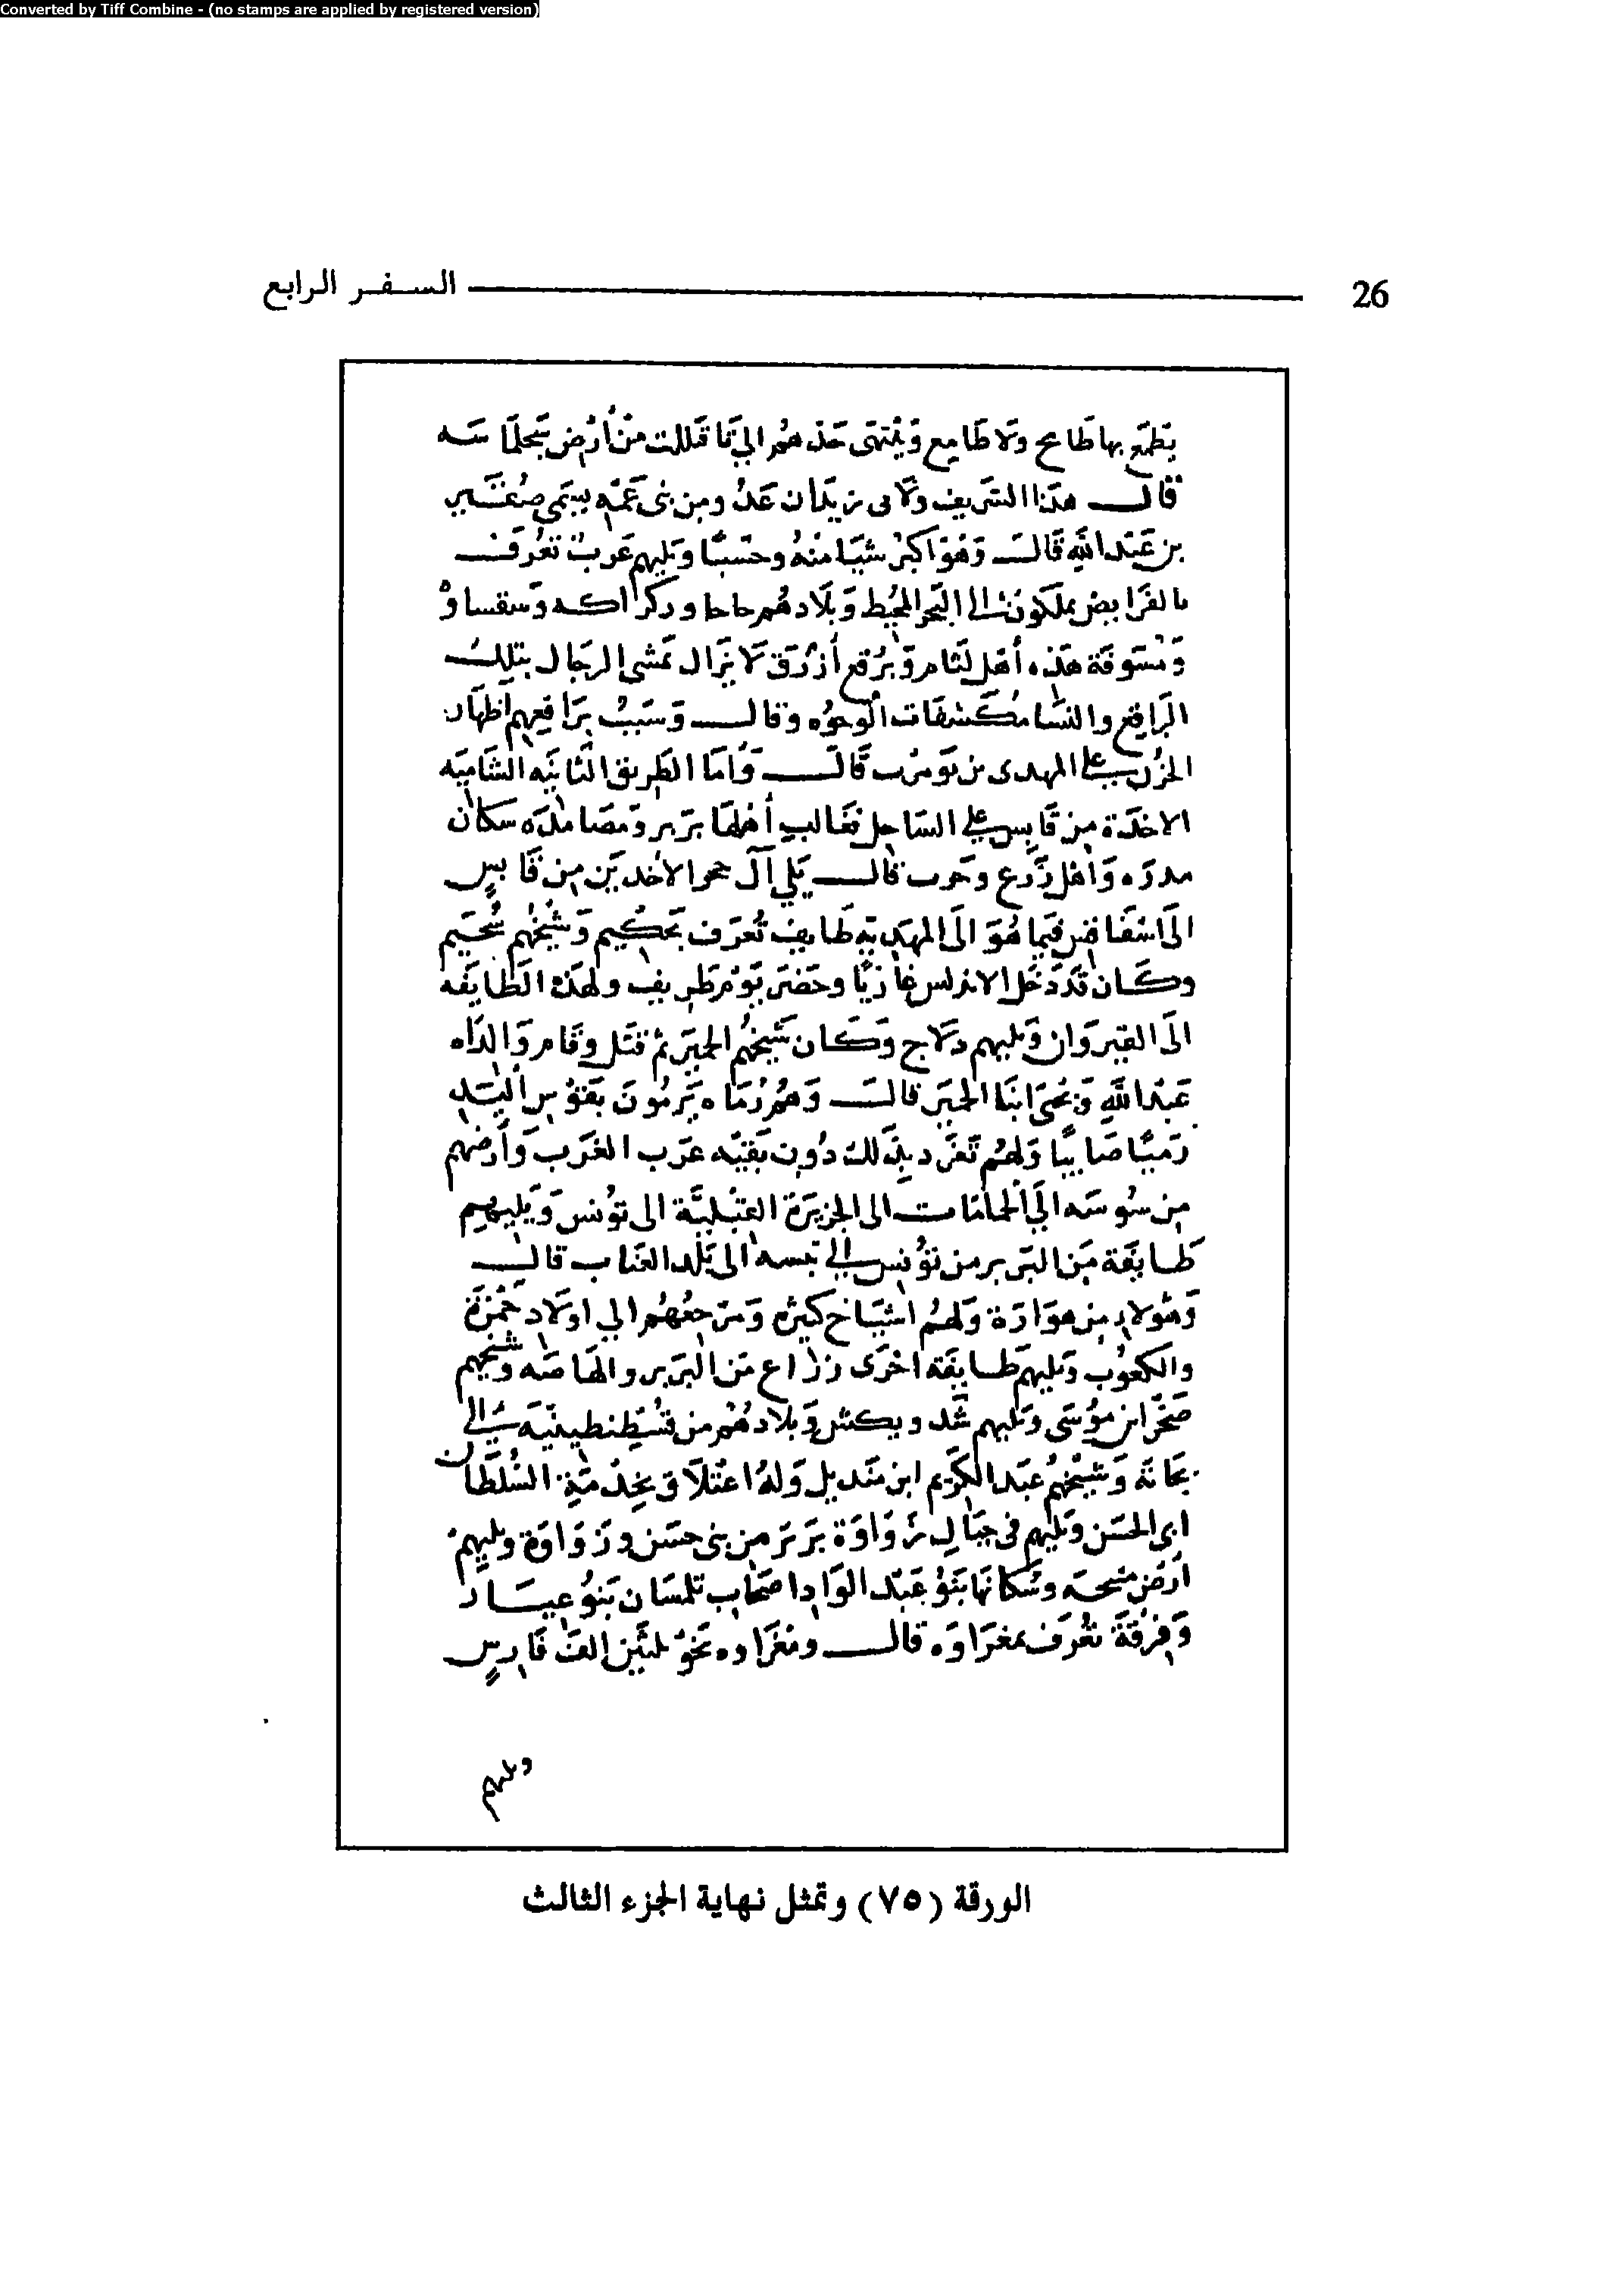 Converted by Tiff Combine - (no stamps are applied by registered version)
26 السفر الرابع
يَطمَع بها طَامح ولا طَامِع وَيُنتهَى حَدّ هُم الي مَا قَللت من أرض سَجلمَا سَه
قالـــ هذا الشريف ولابى زيدان عَدُ ومن بنى عَمِّه يسمى صُغَير
بن عَبْد الله قالَ وَهُوَ اكبرُ شيبا منهُ وحسَبًا وَيليهم عَربٌ تُعْرف
بالغرَابض يملكون الى البَحر المحيط وَبلَادهُم حاحا ودكراكه وَسقساوْ
وَمَسّوفَة هَذه أهل لثام وَبُرقع أزرق لَا يَزَال تمشى الرجَال بتلك
البَراقع والنسَا مُكَشفَات الوجوُه وقالـــ وَسَبَبُ بَرَاقعهم اظهَار
الحُزن على المهدى بن تومَرت قالَـــ وَامَا الطَريق الثانيَه الشَاميَه
الاخذة مِن قَابِس على السَاحل فغَالب أهلهَا بربر ومَصَامدَه سكان
مدرَه وَاهل زَرع وحَرب قالـــ يَلى آل حجر الاخذين مِن قَابِس
الَى اسفَاقس فيمَا هُوَ الَى المهديَّة طَايف تُعرَف بحَكِيم وَشَيخهُم سُحَيم
وكَان قَد دَخَل الاندلس غَازيًا وحضَر يَوْم طَريف ولهَذه الطَايفَه
الَى القيروَان وَيليهم دلَاج وَكَان شَيخهُم الحبَير ثم قتَل وقَام وَالدَاه
عَبْد اللَّه وَيحيَى ابنَا الحبَير قالـــ وَهم رُمَاه يَرمُونَ بقَوْس اليَد
رَميًا صَايبًا وَلهُم تَفرّد بذَلك دُون بَقيَّه عرَب الغَرب وَأرضهم
مِن سُوسَه الَى الحمَامَات الى الجزيرَة القبليَّة الى تونس وَيَليهِم
طَايفَة مِن البَربر من تونس الى تبسه الى بَلَد العنَاب قالـــ
وَهَوُلاء مِن هوَارَة وَلهُم اشيَاخ كثيره وَمَرجعُهُم الى اولَاد حَمْزَة
والكعُوب وَيليهم طَايفَه اخْرَى زرَاع مَن البَربر والهَاصَه وشيخهم
صَخر ابن مُوسَى وَيليهم سَدويكش وَبلَادهُم من قُسَطِنطينيَّة الى
بجَايَه وَشَيْخهُم عَبْد الكَريم ابن مَنديل وَلهُ اعتلَاق بخدْمَة السُلطَان
ابى الحسَن وَيَليهم فى جبَال زَوَاوَة بَربَر من بنى حسَن وزَوَاوَة ويليهم
ارَض متيجَه وسُكانهَا بَنوُ عَبْد الوَاد اصحَاب تلمسَان بَنوُ عيسَا
وَفرْقَة تعْرَف بمغرَاوَه قالـــ ومَغرَاوه نحوَ الف فَارِس
ويليهم
الورقة (٧٥) وتمثل نهاية الجزء الثالث